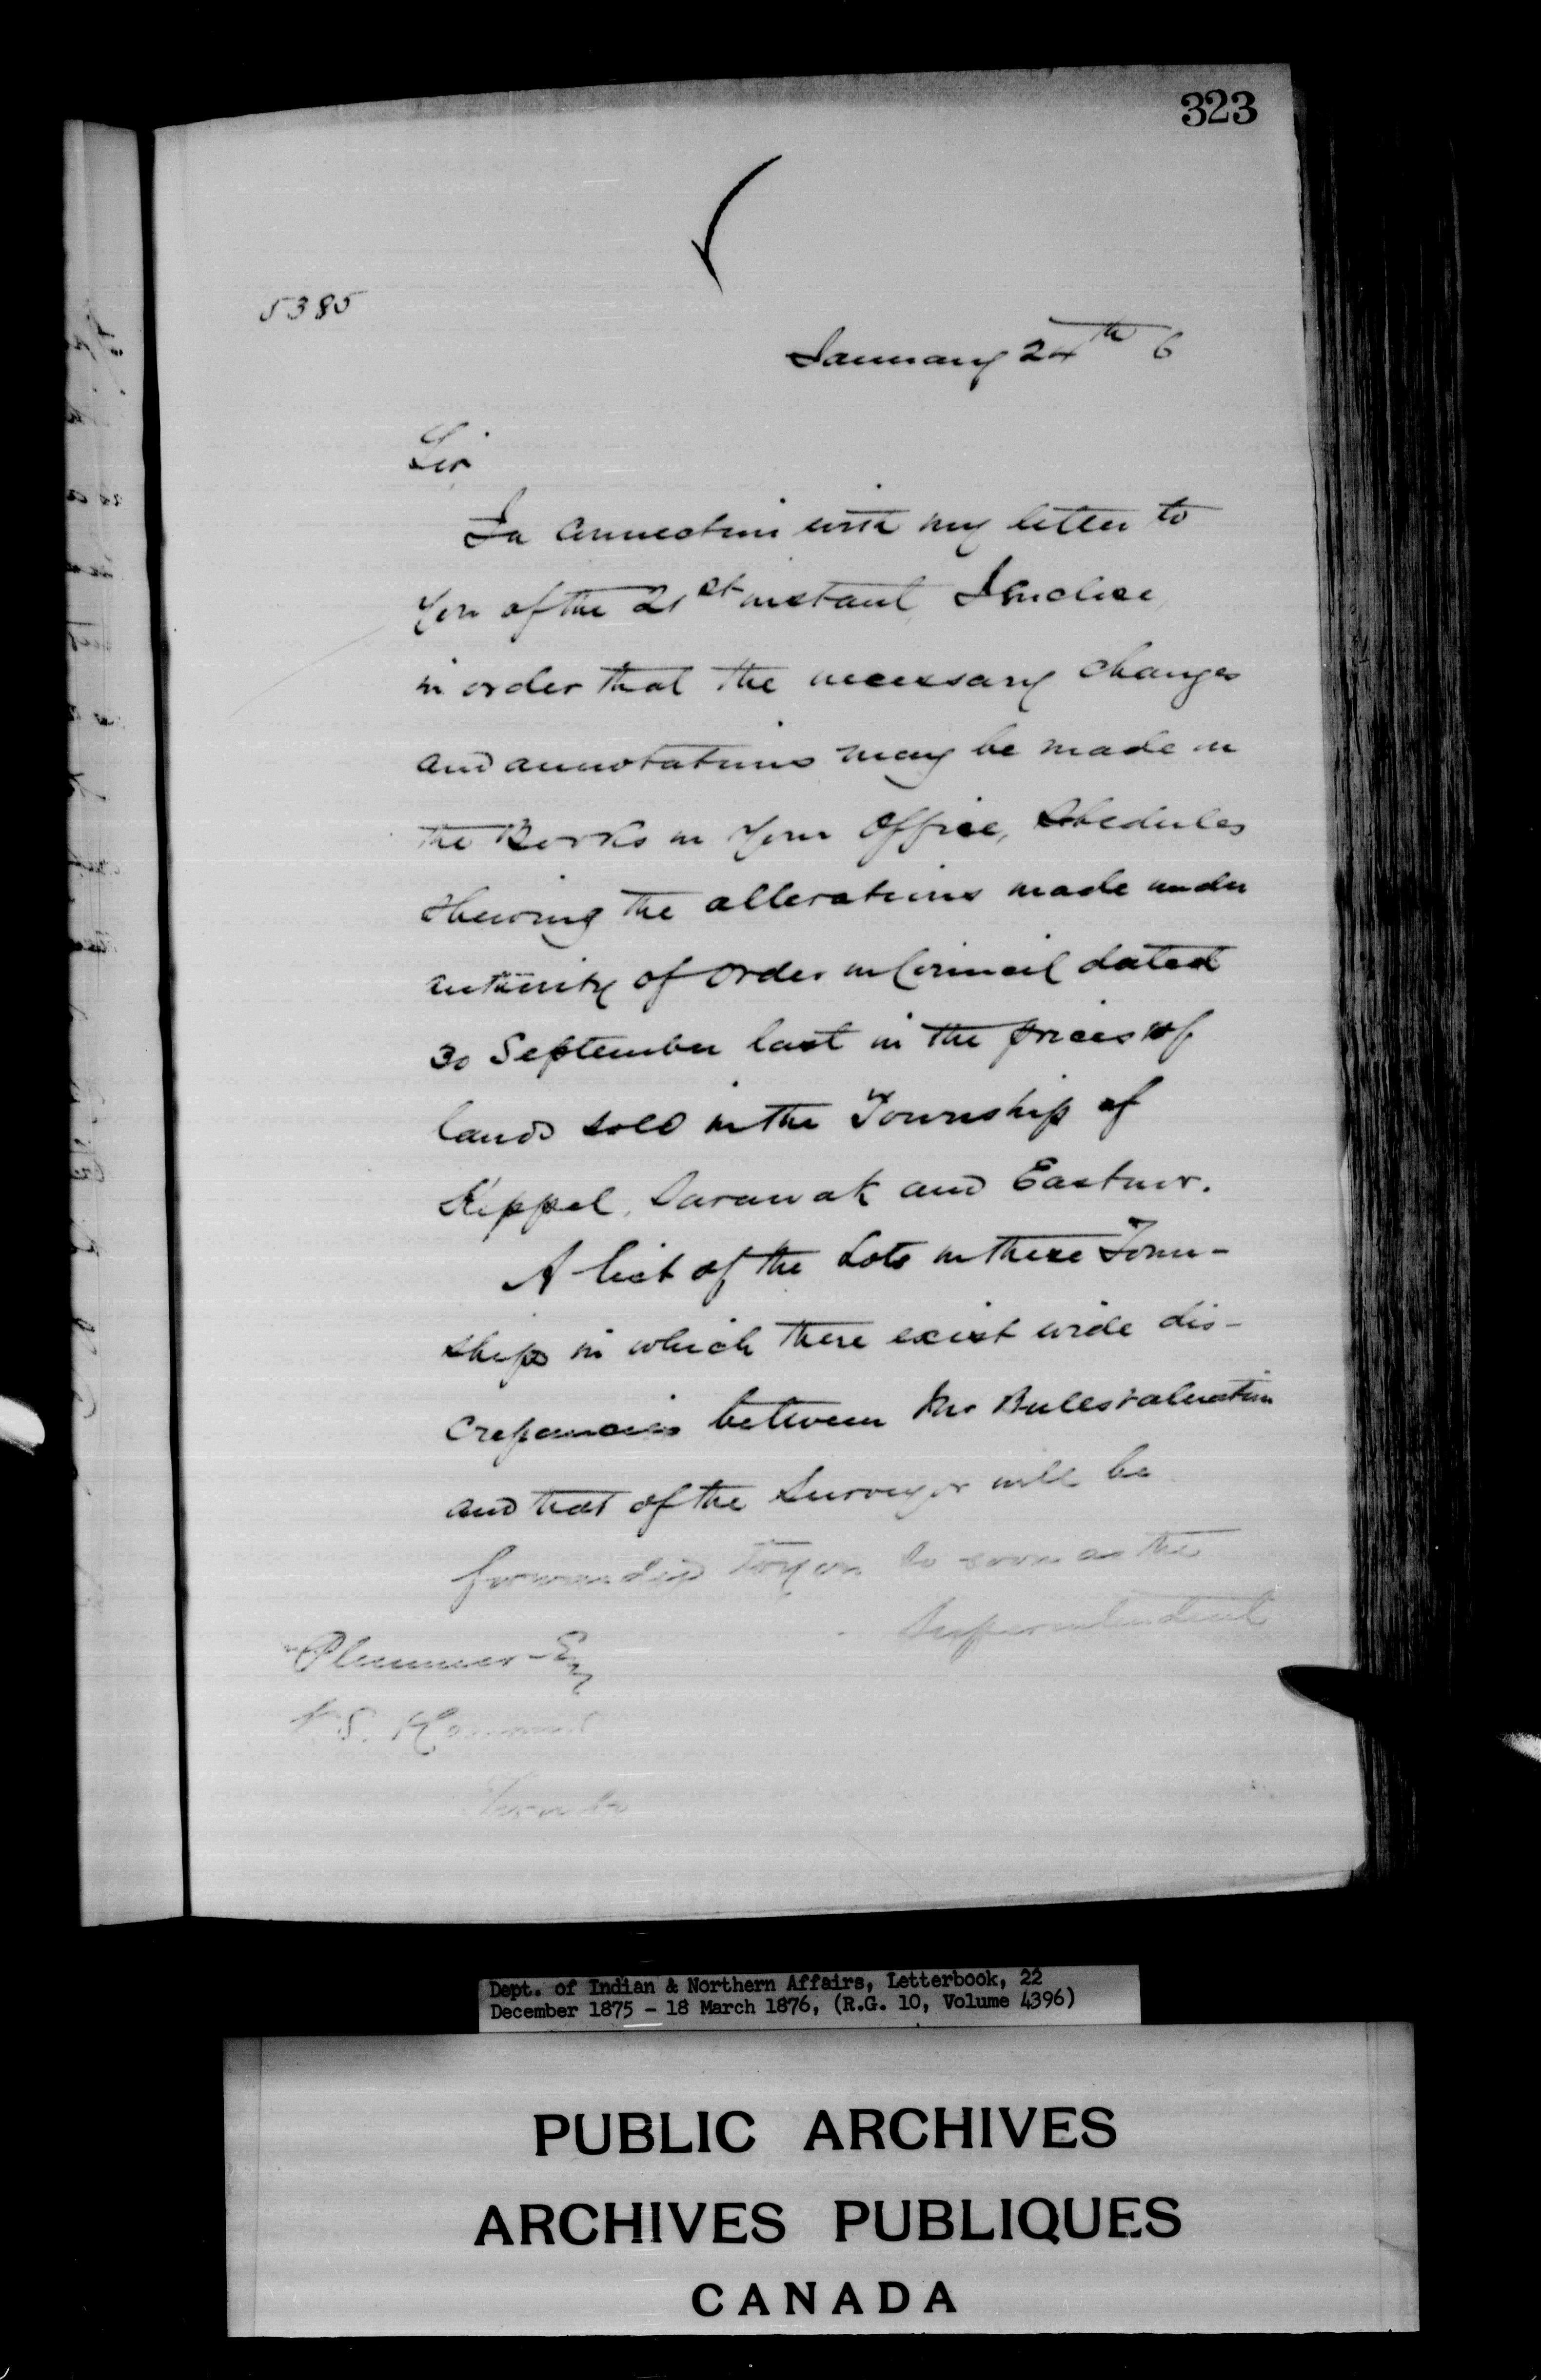 323
5385
January 24th 6
Sir
In connection with my letter to
you of the 21st instant, I enclose,
in order that the necessary changes
and annotations may be made in
the Books in your Office, Schedules
shewing the alterations made under
authority of Order in Council dated
30 September last in the prices of
lands sold in the Township of
Keppel, Sarawak and Eastnor.
A list of the Lots in these Town-
ships in which there exist wide dis-
crepancies between Mr Bulls valuation
and that of the Surveyor will be
forwarded to you so soon as the
Superintendent
Plummer Esq
Toronto
Dept. of Indian & Northern Affairs, Letterbook, 22
December 1875 - 18 March 1876, (R.G. 10, Volume 4396)
PUBLIC ARCHIVES
ARCHIVES PUBLIQUES
CANADA